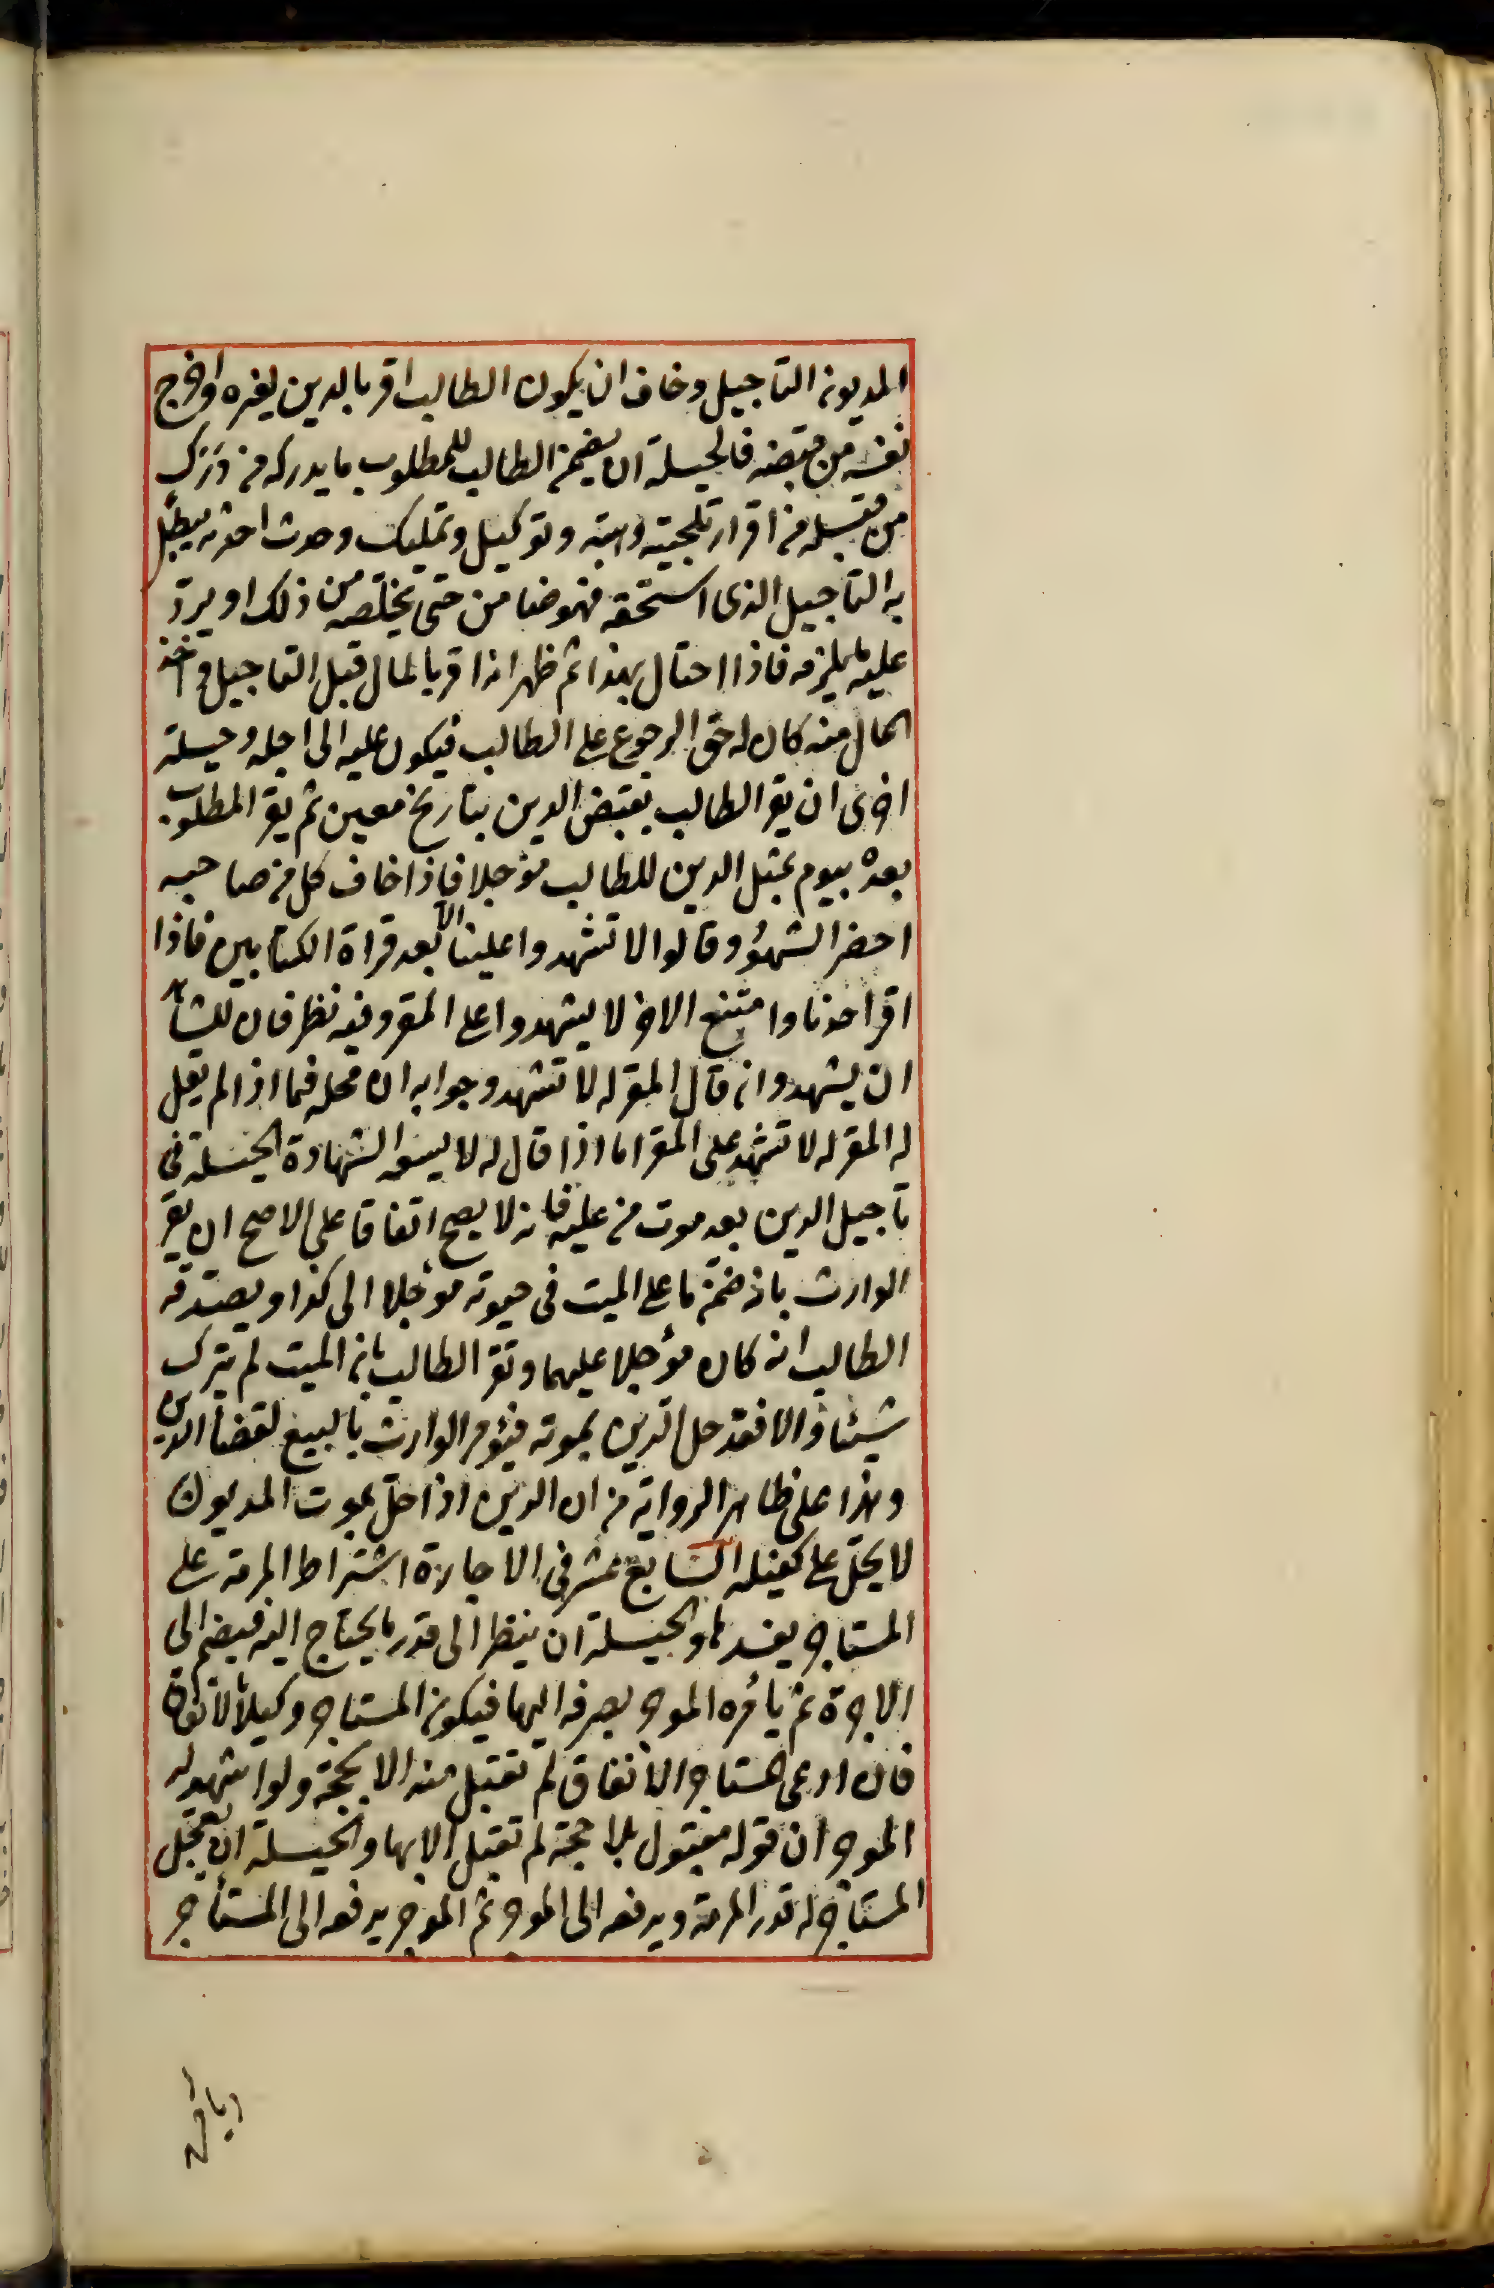 المديون التاجيل وخاف ان يكون الطالب اقر بالدين لغيره او اخرج
نفسه من قبضه فالحيلة ان يضمن الطالب للمطلوب ما يدركه من درك
من قبله من اقرار تلجئة وهبة وتوكيل وتمليك وحدث احدثه يبطل
به التاجيل الذى استحقه فهو ضامن حتى يخلصه من ذلك او يرد
عليه ما يلزمه فاذا احتال بهذا ثم ظهر انه اقر بالمال قبل التاجيل واخذ
المال منه كان له حق الرجوع على الطالب فيكون عليه الى اجله وحيلة
اخرى ان يقر الطالب بقبض الدين بتاريخ معين ثم يقر المطلوب
بعده بيوم بمثل الدين للطالب مؤجلا فاذا خاف كل من صاحبه
احضر الشهود وقالوا لا تشهدوا علينا الا بعد قراة الكتابين فاذا
اقر احدنا وامتنع الاخر لا يشهدوا على المقر وفيه نظر فان للشاهد
ان يشهد وان قال المقر له لا تشهد وجوابه ان محله فيما اذا لم يقل
له المقر له لا تشهد على المقر اما اذا قال له لا يسعه الشهادة الحيلة فى
تاجيل الدين بعد موت من عليه فانه لا يصح اتفاقا على الاصح ان يقر
الوارث بانه ضمن ما على الميت فى حيوته مؤجلا الى كذا ويصدقه
الطالب انه كان مؤجلا عليهما ويقر الطالب بان الميت لم يترك
شيئا والا فقد حل الدين بموته فيؤمر الوارث بالبيع لقضأ الدين
وهذا على ظاهر الرواية من ان الدين اذا حل بموت المديون
لا يحل على كفيله السابع عشر فى الاجارة اشتراط المرمة على
المستاجر يفسدها والحيلة ان ينظر الى قدر ما يحتاج اليه فيضم الى
الاجرة ثم يأمره الموجر بصرفه اليها فيكون المستاجر وكيلا بالانفاق
فان ادعى المستاجر الانفاق لم تقبل منه الا بحجة ولو اشهد له
الموجر ان قوله مقبول بلا حجة لم تقبل الا بها والحيلة ان يعجل
المستاجر له قدر المرمة ويدفعه الى الموجر ثم الموجر يدفعه الى المستأجر